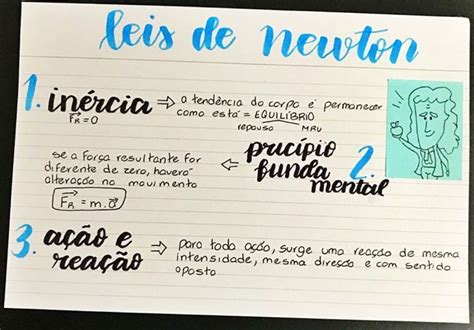 leis de newton
1. inércia ⇒ a tendência do corpo é permanecer
como está = EQUILÍBRIO
F⃗R = 0
repouso MRU
se a força resultante for
diferente de zero, haverá
alteração no movimento
F⃗R = m.a⃗
⇐ precípio 2.
funda
mental
3. ação e
reação ⇒ para toda ação, surge uma reação de mesma
intensidade, mesma direção e com sentido
oposto